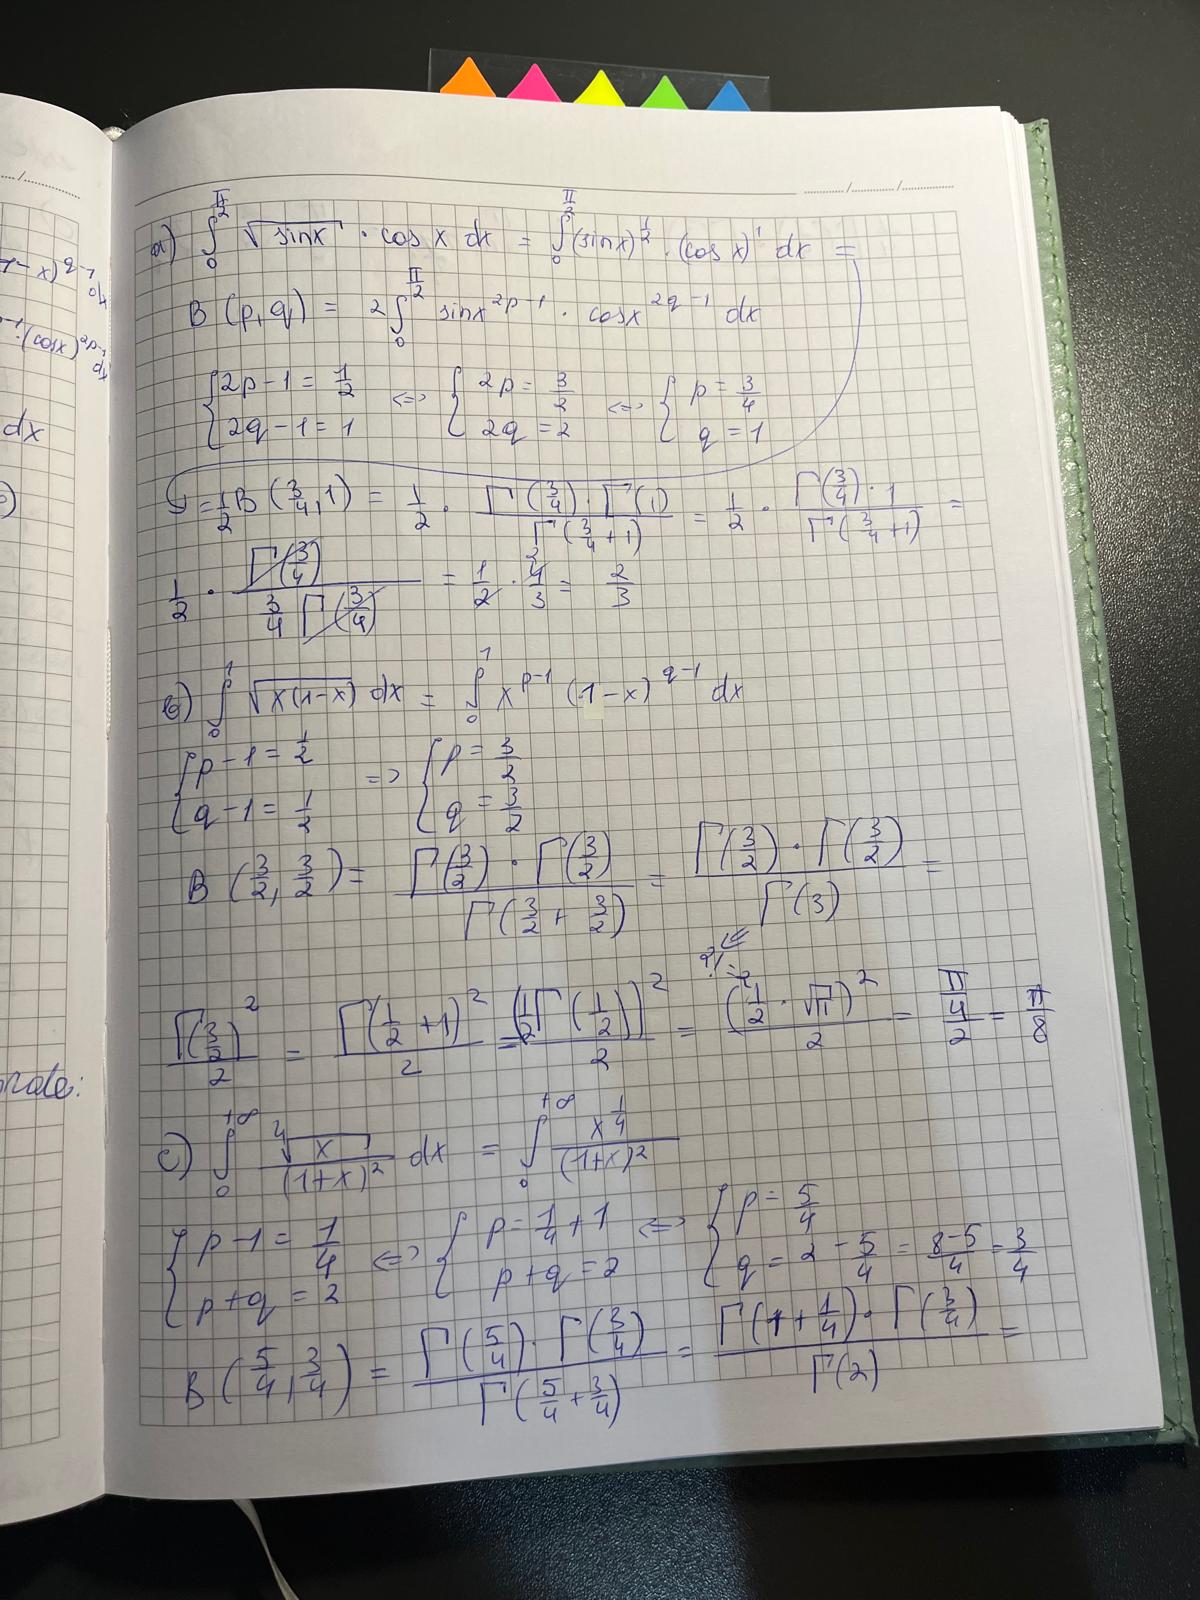 ...../...../.....
a) ∫₀^{π/2} √sinx · cos x dx = ∫₀^{π/2} (sinx)^{1/2} · (cos x)^1 dx =
B (p,q) = 2∫₀^{π/2} sinx^{2p-1} · cosx^{2q-1} dx
{2p-1 = 1/2 <=> {2p = 3/2 <=> {p = 3/4
{2q-1 = 1 {2q = 2 {q = 1
= 1/2 B (3/4, 1) = 1/2 · Γ(3/4) · Γ(1) / Γ(3/4 + 1) = 1/2 · Γ(3/4) · 1 / Γ(3/4 + 1) =
1/2 · Γ(3/4) / 3/4 Γ(3/4) = 1/2 · 4/3 = 2/3
b) ∫₀^1 √x(1-x) dx = ∫₀^1 x^{p-1} (1-x)^{q-1} dx
{p-1 = 1/2 => {p = 3/2
{q-1 = 1/2 {q = 3/2
B (3/2, 3/2) = Γ(3/2) · Γ(3/2) / Γ(3/2 + 3/2) = Γ(3/2) · Γ(3/2) / Γ(3) =
2! = 2
Γ(3/2)^2 / 2 = Γ(1/2 + 1)^2 / 2 = (1/2 Γ(1/2))^2 / 2 = (1/2 · √π)^2 / 2 = π/4 / 2 = π/8
c) ∫₀^{+∞} ⁴√x / (1+x)^2 dx = ∫₀^{+∞} x^{1/4} / (1+x)^2
{p-1 = 1/4 <=> {p = 1/4 + 1 <=> {p = 5/4
{p+q = 2 {p+q = 2 {q = 2 - 5/4 = 8-5/4 = 3/4
B (5/4, 3/4) = Γ(5/4) · Γ(3/4) / Γ(5/4 + 3/4) = Γ(1 + 1/4) · Γ(3/4) / Γ(2) =
dx